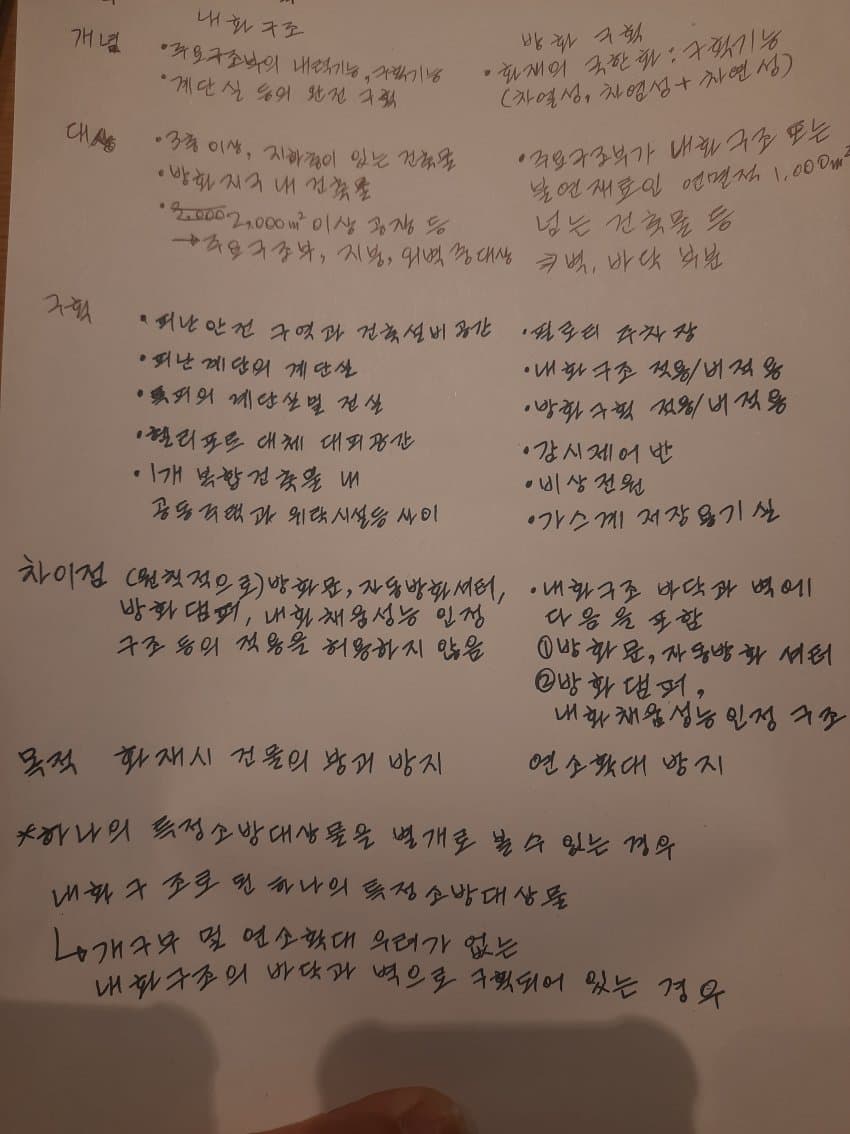 내화구조
개념
• 주요구조부의 내력기능, 구획기능
• 계단실 등의 완전 구획
방화 구획
• 화재의 국한화 : 구획기능
(차열성, 차염성 + 차연성)
대상
• 3층 이상, 지하층이 있는 건축물
• 방화지구 내 건축물
• 2,000m² 이상 공장 등
→ 주요구조부, 지붕, 외벽 중 대상
• 주요구조부가 내화구조 또는
불연재료인 연면적 1,000m²
넘는 건축물 등
⇒ 벽, 바닥 부분
구획
• 피난안전 구역과 건축설비공간
• 피난계단의 계단실
• 특피의 계단실 및 전실
• 헬리포트 대체 대피공간
• 1개 복합건축물 내
공동주택과 위락시설등 사이
• 필로티 주차장
• 내화구조 적용/비적용
• 방화구획 적용/비적용
• 감시제어반
• 비상전원
• 가스계 저장용기실
차이점
(원칙적으로) 방화문, 자동방화셔터,
방화댐퍼, 내화채움성능 인정
구조 등의 적용을 허용하지 않음
• 내화구조 바닥과 벽에
다음을 포함
① 방화문, 자동방화 셔터
② 방화댐퍼,
내화채움성능인정 구조
목적 화재시 건물의 붕괴 방지
연소확대 방지
* 하나의 특정소방대상물을 별개로 볼 수 있는 경우
내화구조로 된 하나의 특정소방대상물
↳ 개구부 및 연소확대 우려가 없는
내화구조의 바닥과 벽으로 구획되어 있는 경우